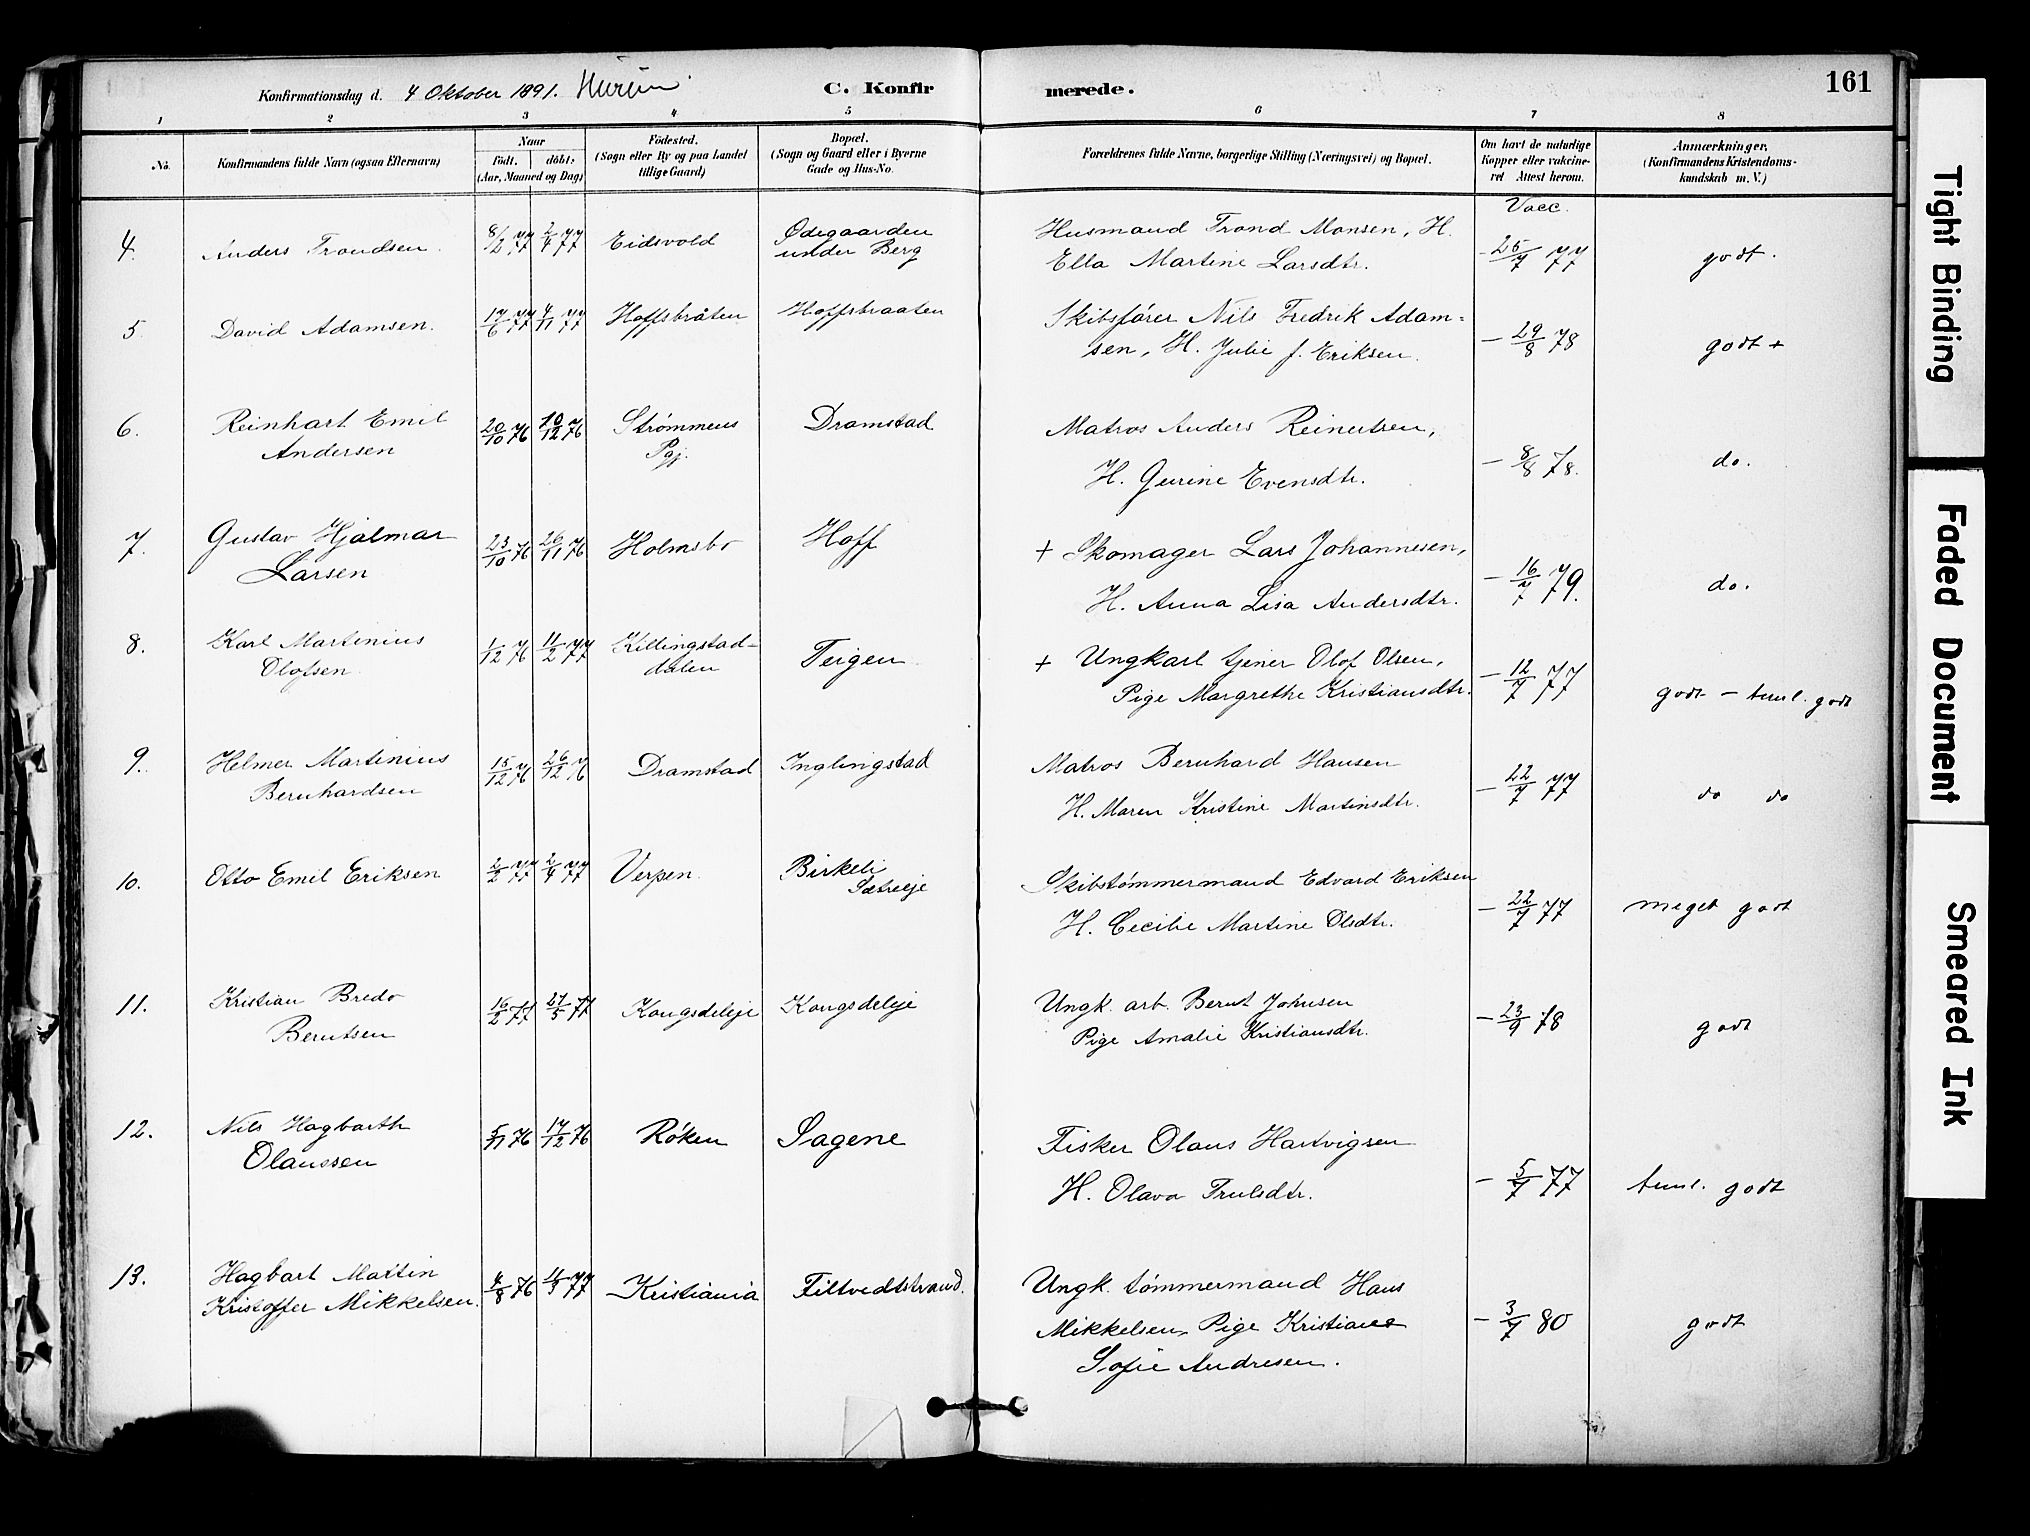 Konfirmationsdag d. 4 Oktober 1891. Hurum
C. Konfirmerede.
161
1 2 3 4 5 6 7 8
No. Konfirmandens fulde Navn (ogsaa Efternavn) Naar født, døbt; (Aar, Maaned og Dag) Fødested. (Sogn eller By og paa Landet tillige Gaard) Bopæl. (Sogn og Gaard eller i Byerne Gade og Hus-No. Forældrenes fulde Navne, borgerlige Stilling (Næringsvei) og Bopæl. Om havt de naturlige Kopper eller vaccineret Attest herom. Anmærkninger, (Konfirmandens Kristendomskundskab m. V.)
Vacc.
4. Anders Trondsen. 8/2 77 2/4 77 Eidsvold Ødegaarden under Berg Husmand Trond Monsen, H.
Ella Martine Larsdtr. - 25/7 77 godt.
5. David Adamsen. 17/6 77 4/11 77 Hoffsbråten Hoffsbraaten Skibsfører Nils Fredrik Adam=
sen, H. Julie f. Eriksen. - 29/8 78 godt +
6. Reinhart Emil Andersen 20/10 76 10/12 76 Strømmens Pgj. Dramstad Matros Anders Reinertsen,
H. Gurine Evensdtr. - 8/8 78. do.
7. Gustav Hjalmar Larsen 23/10 76 26/11 76 Holmsbo Hoff + Skomager Lars Johannesen,
H. Anna Lisa Andersdtr. - 16/7 79. do.
8. Karl Martinius Olofsen 1/12 76 11/2 77 Killingstad-dalen Teigen + Ungkarl tjener Olof Olsen,
Pige Margrethe Kristiansdtr. - 12/7 77 godt - teml. godt
9. Helmer Martinius Bernhardsen 15/12 76 26/12 76 Dramstad Inglingstad Matros Bernhard Hansen
H. Maren Kristine Martinsdtr. - 22/7 77 do do
10. Otto Emil Eriksen 2/2 77 2/4 77 Verpen. Birkeli Sætreeje Skibstømmermand Edvard Eriksen
H. Cecilie Martine Olsdtr. - 22/7 77 meget godt
11. Kristian Bredo Berntsen 16/2 77 27/5 77 Kongsdeleje Kongsdeleje Ungk. arb. Bernt Johnsen
Pige Amalie Kristiansdtr. - 23/9 78 godt
12. Nils Hagbarth Olaussen 5/11 76 17/12 76 Røken Sagene Fisker Olaus Hartvigsen
H. Olava Trulsdtr. - 5/7 77 teml. godt
13. Hagbart Martin Kristoffer Mikkelsen. 4/8 76 77 Kristiania Filtvedtstrand. Ungk. tømmermand Hans
Mikkelsen, Pige Kristiane
Sofie Andresen. - 3/7 80 godt
Tight Binding
Faded Document
Smeared Ink